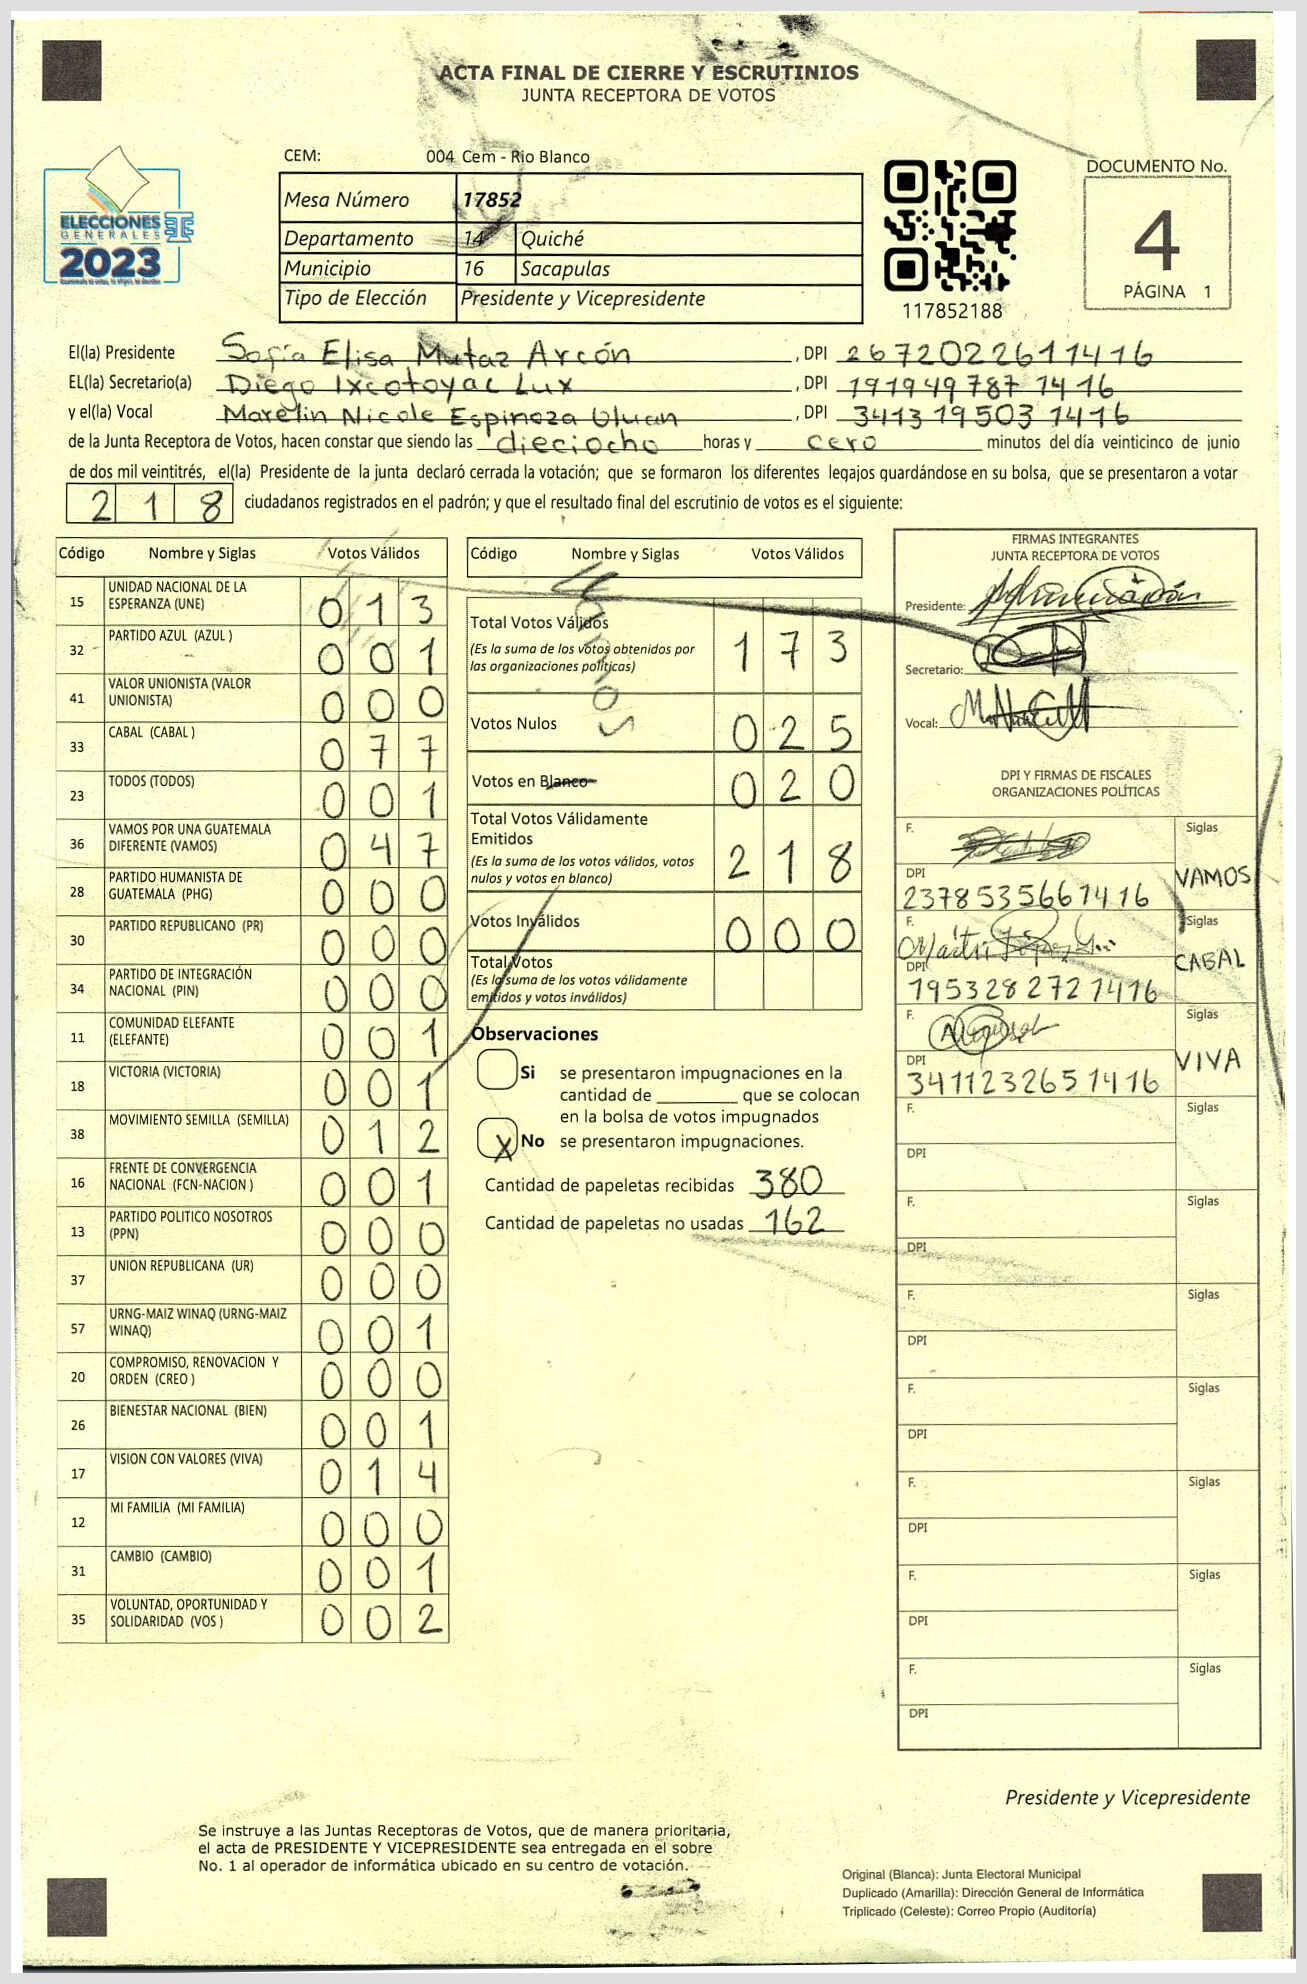 ACTA FINAL DE CIERRE Y ESCRUTINIOS
JUNTA RECEPTORA DE VOTOS
CEM: 004 Cem - Rio Blanco
ELECCIONES
GENERALES
2023
Mesa Número 17852
Departamento 14 Quiché
Municipio 16 Sacapulas
Tipo de Elección Presidente y Vicepresidente
117852188
DOCUMENTO No.
4
PÁGINA 1
El(la) Presidente Sofía Elisa Mutaz Arcón, DPI 2672022611416
EL(la) Secretario(a) Diego Ixcotoyac Lux, DPI 1919497871416
y el(la) Vocal Marelin Nicole Espinoza, DPI 3413195031416
de la Junta Receptora de Votos, hacen constar que siendo las dieciocho horas y cero minutos del día veinticinco de junio
de dos mil veintitrés, el(la) Presidente de la junta declaró cerrada la votación; que se formaron los diferentes legajos quardándose en su bolsa, que se presentaron a votar
218 ciudadanos registrados en el padrón; y que el resultado final del escrutinio de votos es el siguiente:
Código Nombre y Siglas Votos Válidos
15 UNIDAD NACIONAL DE LA ESPERANZA (UNE) 013
32 PARTIDO AZUL (AZUL ) 001
41 VALOR UNIONISTA (VALOR UNIONISTA) 000
33 CABAL (CABAL ) 077
23 TODOS (TODOS) 001
36 VAMOS POR UNA GUATEMALA DIFERENTE (VAMOS) 047
28 PARTIDO HUMANISTA DE GUATEMALA (PHG) 000
30 PARTIDO REPUBLICANO (PR) 000
34 PARTIDO DE INTEGRACIÓN NACIONAL (PIN) 000
11 COMUNIDAD ELEFANTE (ELEFANTE) 001
18 VICTORIA (VICTORIA) 001
38 MOVIMIENTO SEMILLA (SEMILLA) 012
16 FRENTE DE CONVERGENCIA NACIONAL (FCN-NACION ) 001
13 PARTIDO POLITICO NOSOTROS (PPN) 000
37 UNION REPUBLICANA (UR) 000
57 URNG-MAIZ WINAQ (URNG-MAIZ WINAQ) 001
20 COMPROMISO, RENOVACION Y ORDEN (CREO ) 000
26 BIENESTAR NACIONAL (BIEN) 001
17 VISION CON VALORES (VIVA) 014
12 MI FAMILIA (MI FAMILIA) 000
31 CAMBIO (CAMBIO) 001
35 VOLUNTAD, OPORTUNIDAD Y SOLIDARIDAD (VOS ) 002
Código Nombre y Siglas Votos Válidos
Total Votos Válidos 173
(Es la suma de los votos obtenidos por
las organizaciones políticas)
Vamos
Votos Nulos 025
Votos en Blanco 020
Total Votos Válidamente
Emitidos 218
(Es la suma de los votos válidos, votos
nulos y votos en blanco)
Votos Inválidos 000
Total Votos
(Es la suma de los votos válidamente
emitidos y votos inválidos)
Observaciones
Si se presentaron impugnaciones en la
cantidad de ________ que se colocan
en la bolsa de votos impugnados
X No se presentaron impugnaciones.
Cantidad de papeletas recibidas 380
Cantidad de papeletas no usadas 162
FIRMAS INTEGRANTES
JUNTA RECEPTORA DE VOTOS
Presidente:
Secretario:
Vocal:
DPI Y FIRMAS DE FISCALES
ORGANIZACIONES POLÍTICAS
F. Siglas
VAMOS
DPI
2378535661416
F. Siglas
CABAL
DPI
1953282721416
F. Siglas
VIVA
DPI
3411232651416
F. Siglas
DPI
F. Siglas
DPI
F. Siglas
DPI
F. Siglas
DPI
F. Siglas
DPI
F. Siglas
DPI
F. Siglas
DPI
Presidente y Vicepresidente
Se instruye a las Juntas Receptoras de Votos, que de manera prioritaria,
el acta de PRESIDENTE Y VICEPRESIDENTE sea entregada en el sobre
No. 1 al operador de informática ubicado en su centro de votación.
Original (Blanca): Junta Electoral Municipal
Duplicado (Amarilla): Dirección General de Informática
Triplicado (Celeste): Correo Propio (Auditoría)